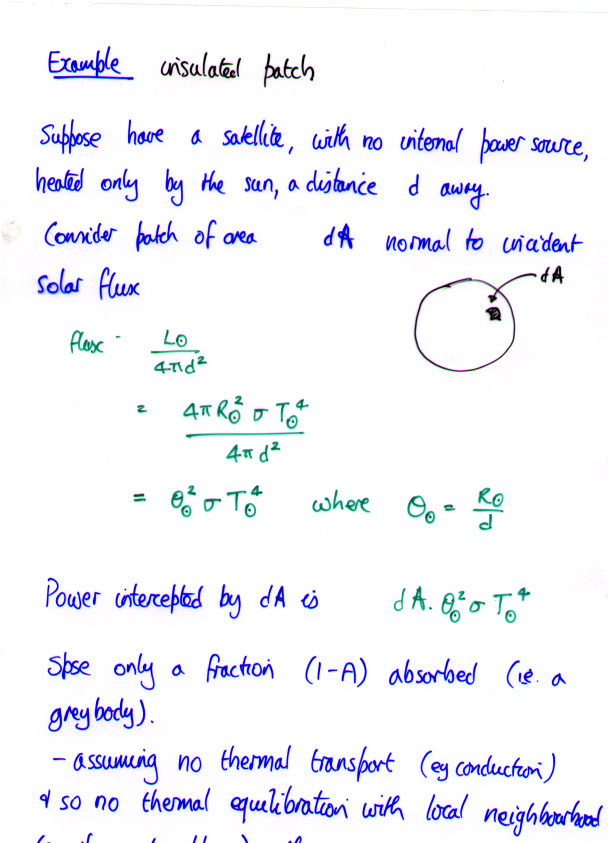 Example insulated patch
Suppose have a satellite, with no internal power source,
heated only by the sun, a distance d away.
Consider patch of area dA normal to incident
solar flux
dA
flux = L⊙ / 4πd²
= 4πR⊙² σ T⊙⁴ / 4πd²
= θ⊙² σ T⊙⁴ where θ⊙ = R⊙ / d
Power intercepted by dA is dA. θ⊙² σ T⊙⁴
Spse only a fraction (1-A) absorbed (ie. a
greybody).
- assuming no thermal transport (eg conduction)
& so no thermal equilibration with local neighbourhood